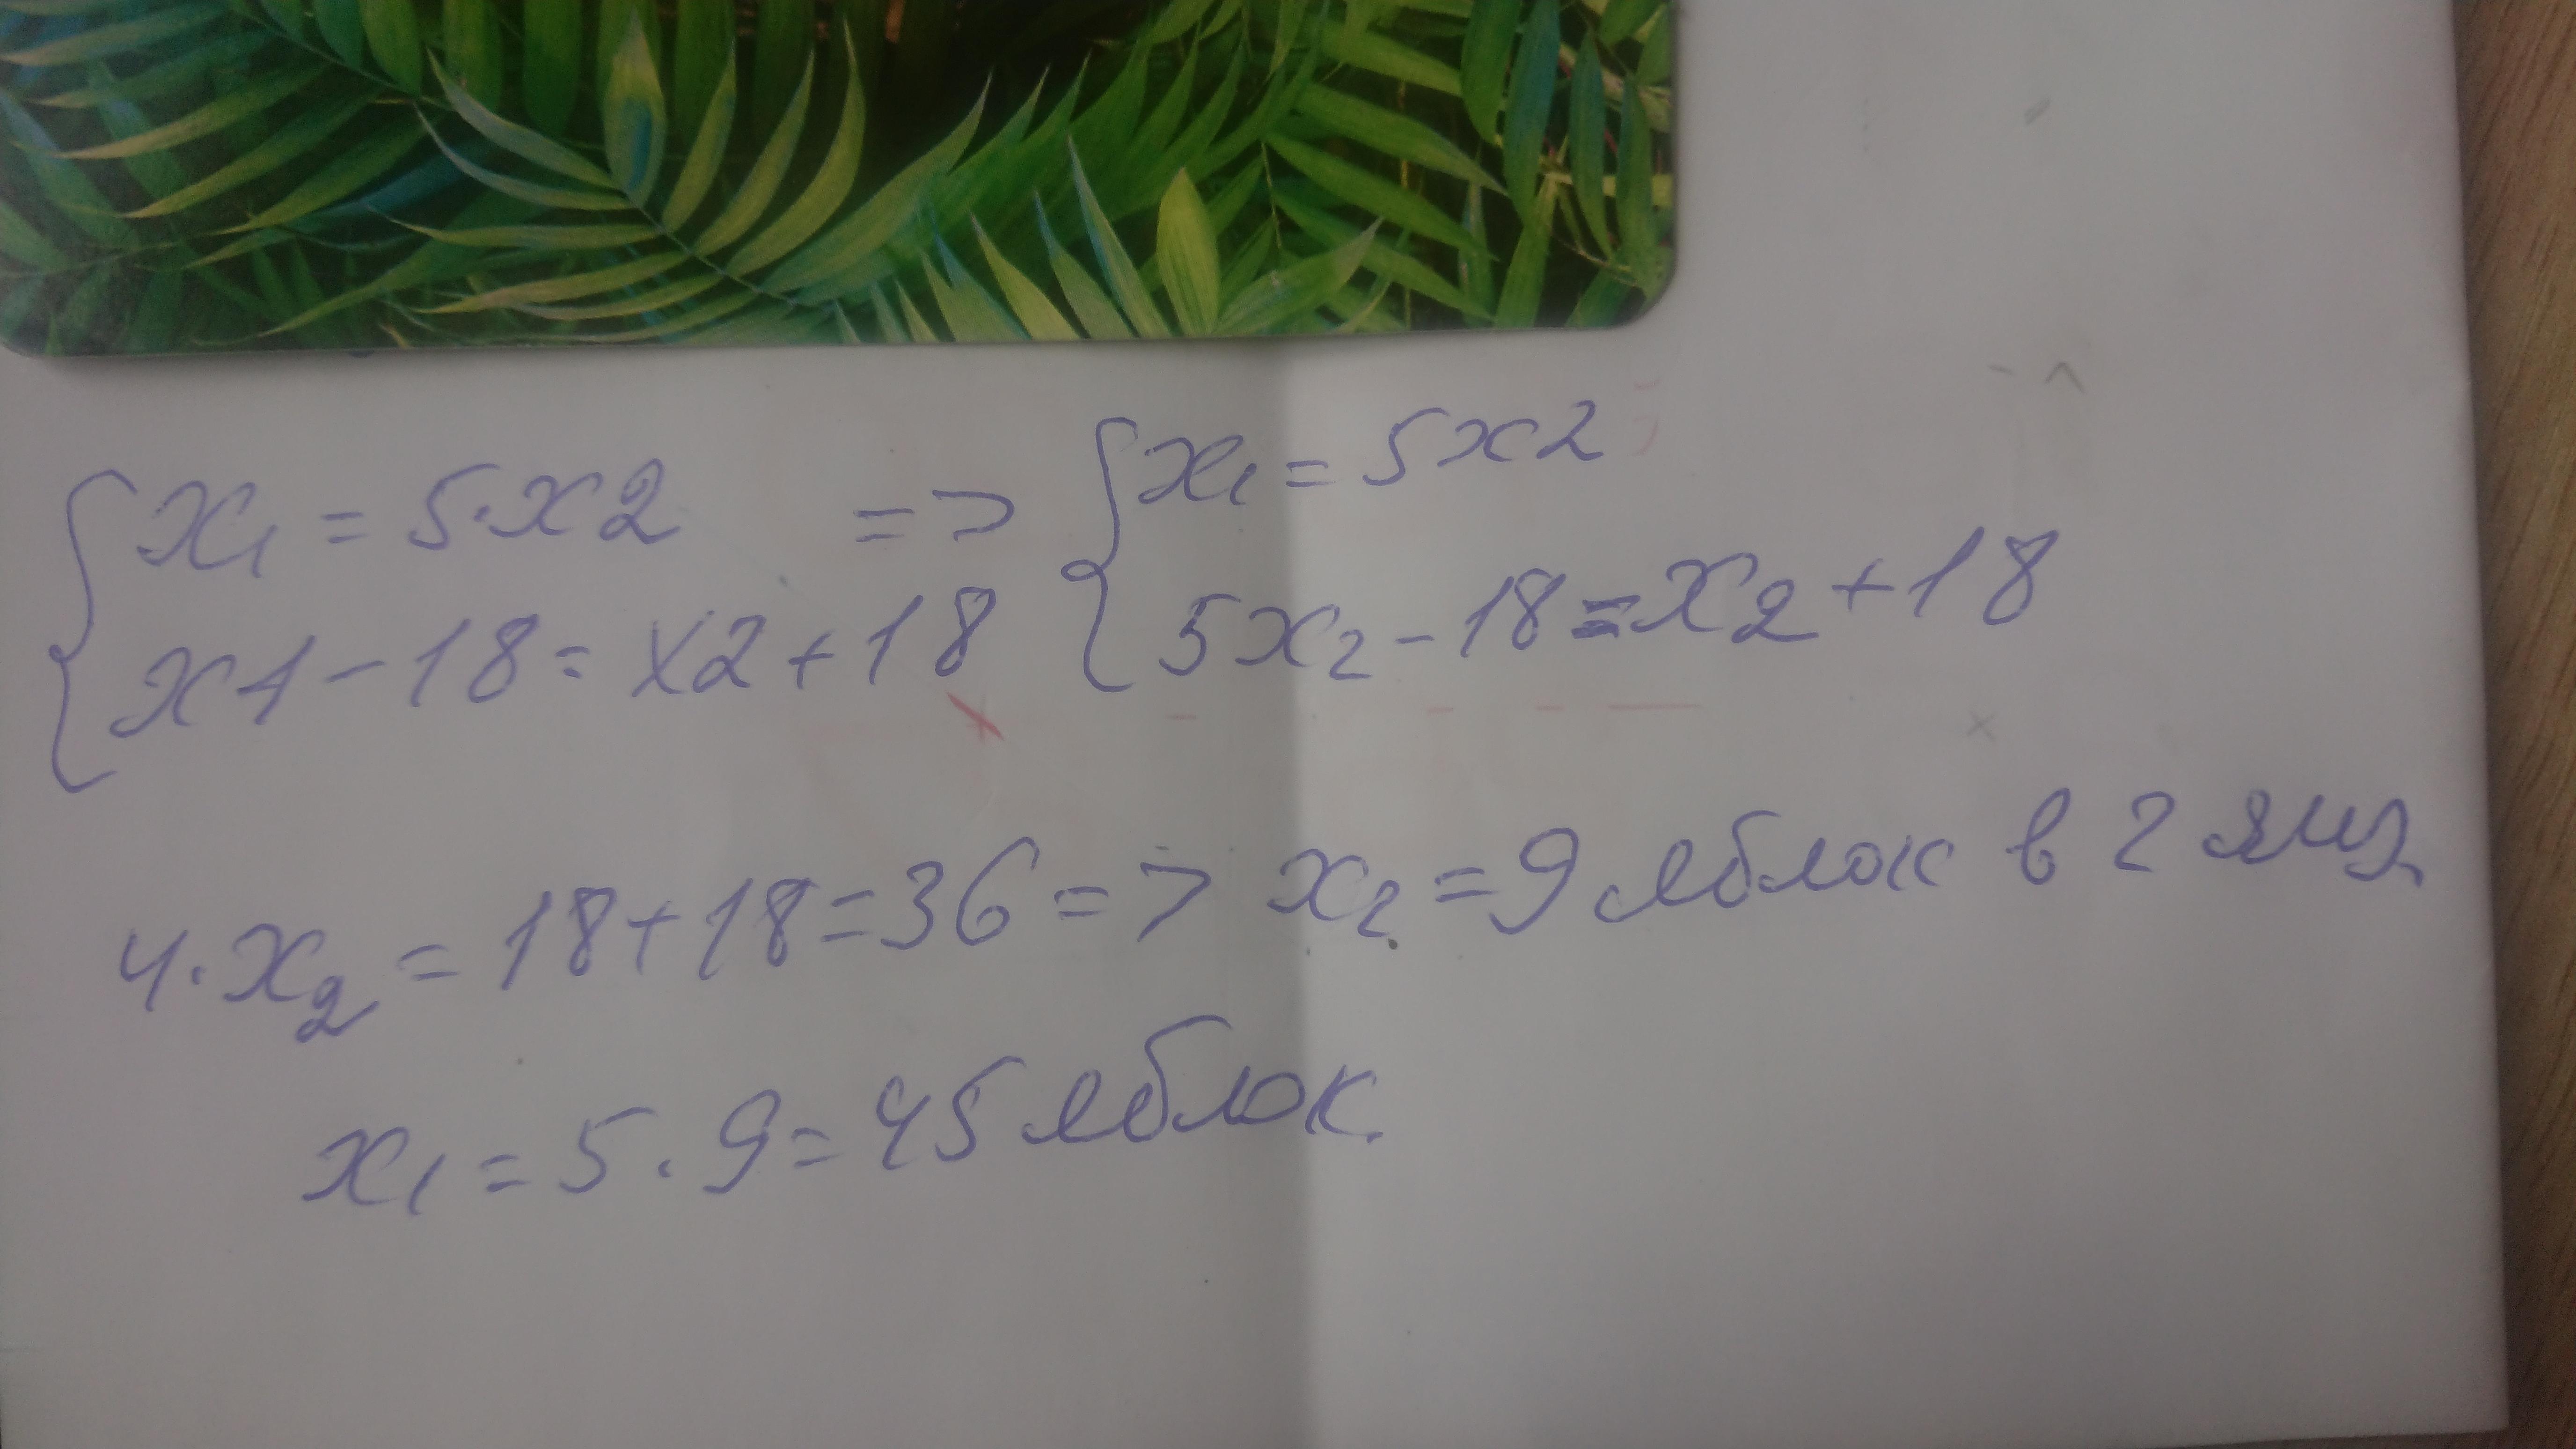 { x₁ = 5·x2 => { x₁ = 5x2
x1 - 18 = x2 + 18 5x₂ - 18 = x₂ + 18
4·x₂ = 18 + 18 = 36 => x₂ = 9 яблок в 2 ящ.
x₁ = 5·9 = 45 яблок.